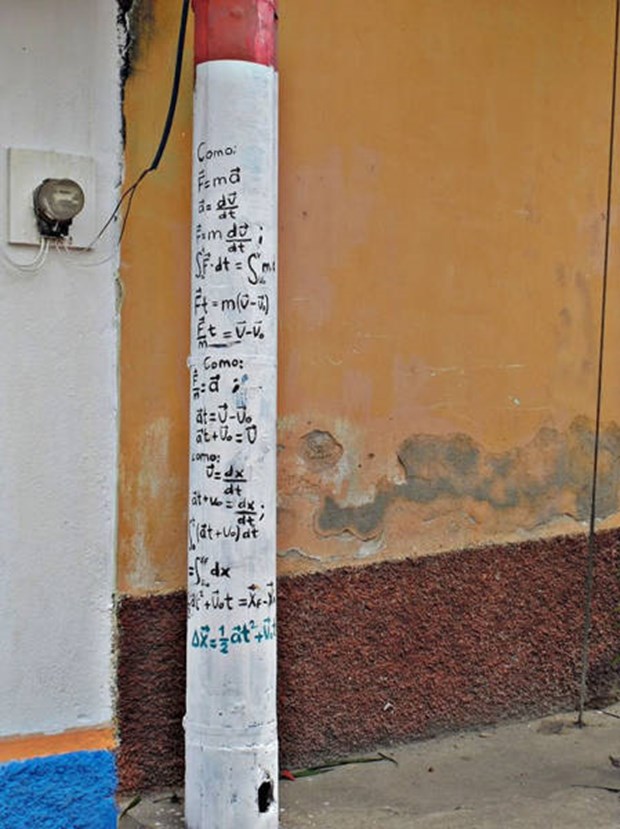 Como:
F⃗=ma⃗
a⃗=dv⃗/dt
F⃗=m dv⃗/dt;
∫F⃗·dt=∫m
F⃗t=m(v⃗-v⃗₀)
F⃗/m t=v⃗-v⃗₀
Como:
F⃗/m=a⃗;
a⃗t=v⃗-v⃗₀
a⃗t+v⃗₀=v⃗
como:
v⃗=dx/dt
a⃗t+v₀=dx/dt;
∫(a⃗t+v₀)dt
=∫dx
t²+v⃗₀t=x⃗F-x⃗
Δx⃗=½a⃗t²+v⃗₀t